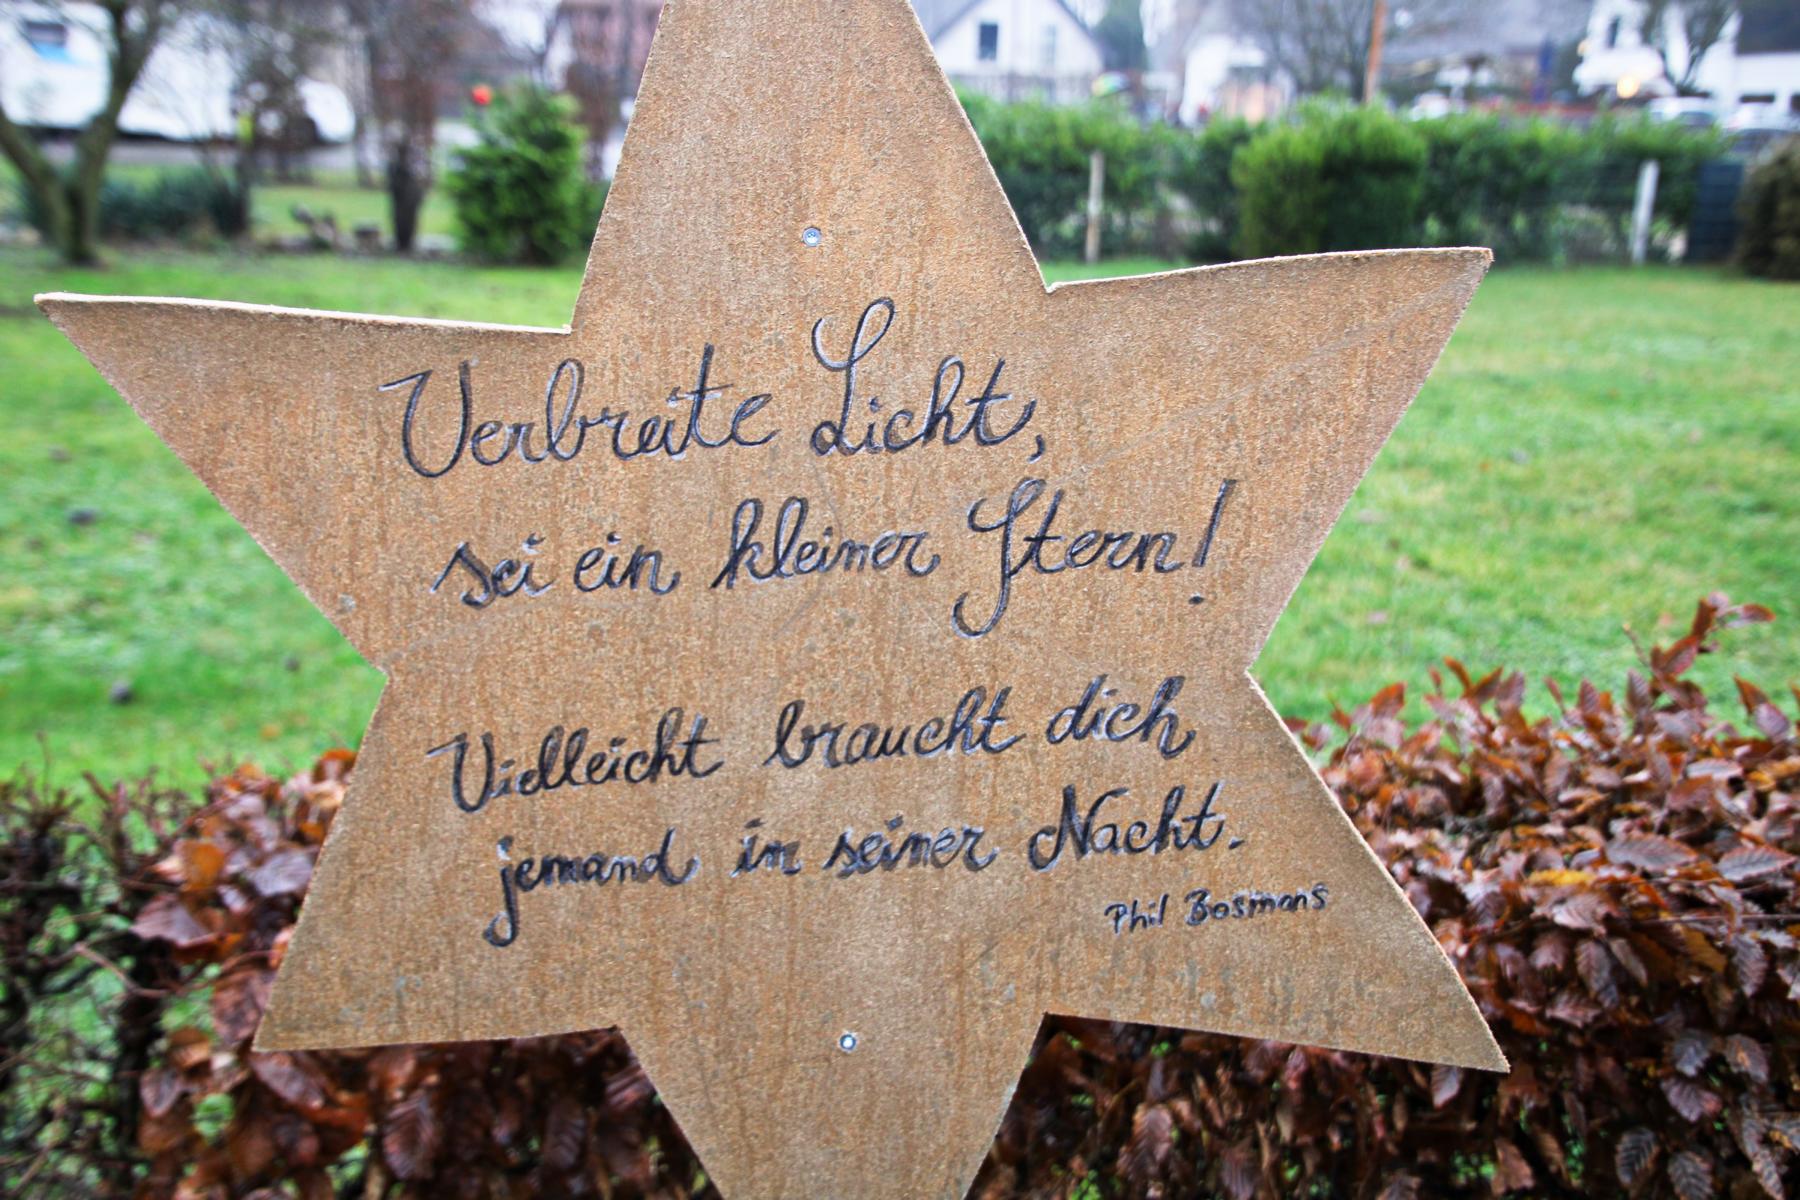 Verbreite Licht,
sei ein kleiner Stern!
Vielleicht braucht dich
jemand in seiner Nacht.
Phil Bosmans